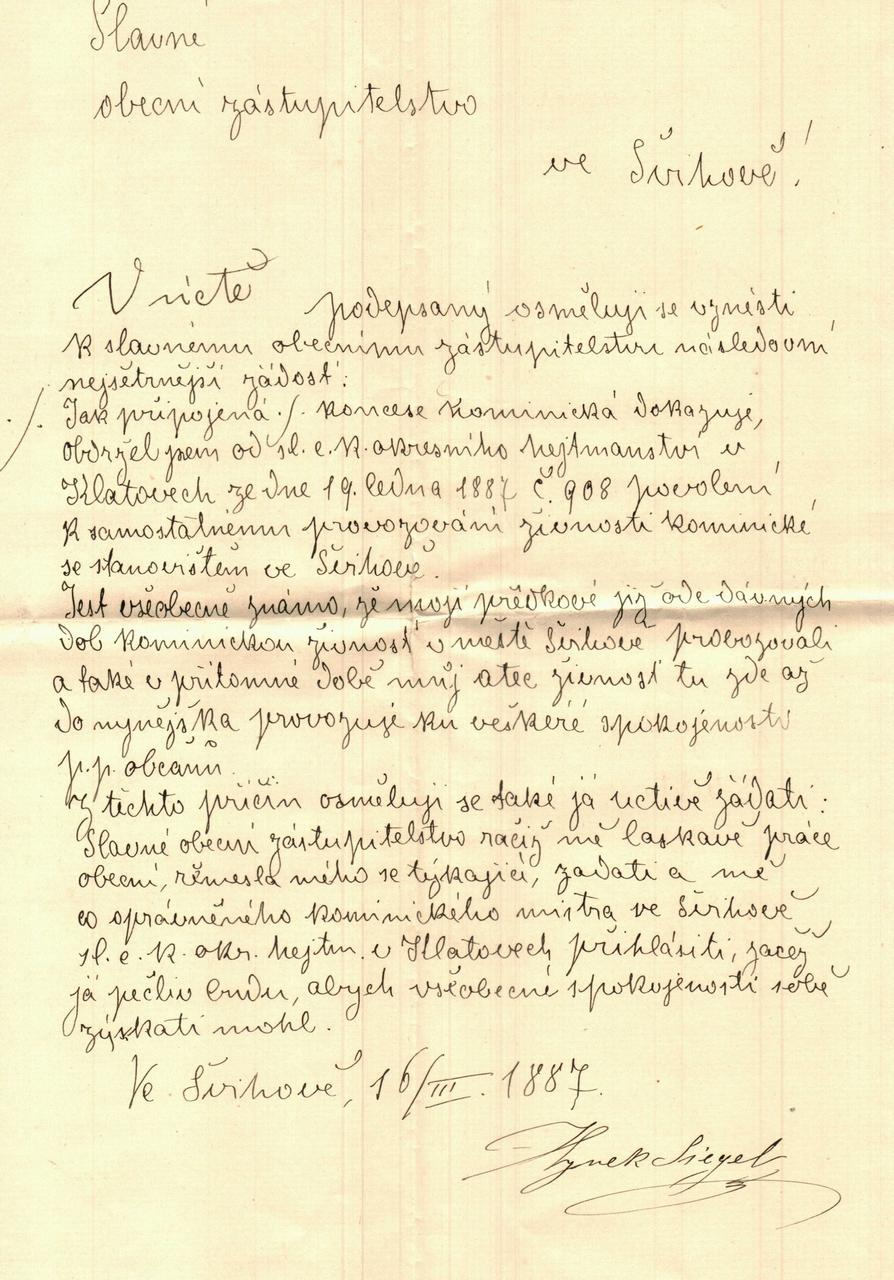 Slavné
obecní zástupitelstvo
ve Švihově!
V úctě podepsaný osměluji se vznésti
k slavnému obecnímu zástupitelstvu následovní
nejšetrnější žádost:
Jak připojená ·/. koncese kominická dokazuje,
·/.
obdržel jsem od sl. c. k. okresního hejtmanství v
Klatovech ze dne 19. ledna 1887 č. 908 povolení
k samostatnému provozování živnosti kominické
se stanovištěm ve Švihově.
Jest všeobecně známo, že moji předkové již ode dávných
dob kominickou živnosť v městě Švihově provozovali
a také v přítomné době můj otec živnosť tu zde až
do nynějška provozuje ku veškeré spokojenosti
p. p. občanů.
Z těchto příčin osměluji se také já uctivě žádati:
Slavné obecní zástupitelstvo račiž mě laskavě práce
obecní, řemesla mého se týkající, zadati a mě
co oprávněného kominického mistra ve Švihově
sl. c. k. okr. hejtm. v Klatovech přihlásiti, začež
já pečliv budu, abych všeobecné spokojenosti sobě
získati mohl.
Ve Švihově, 16/III. 1887.
Hynek Siegel